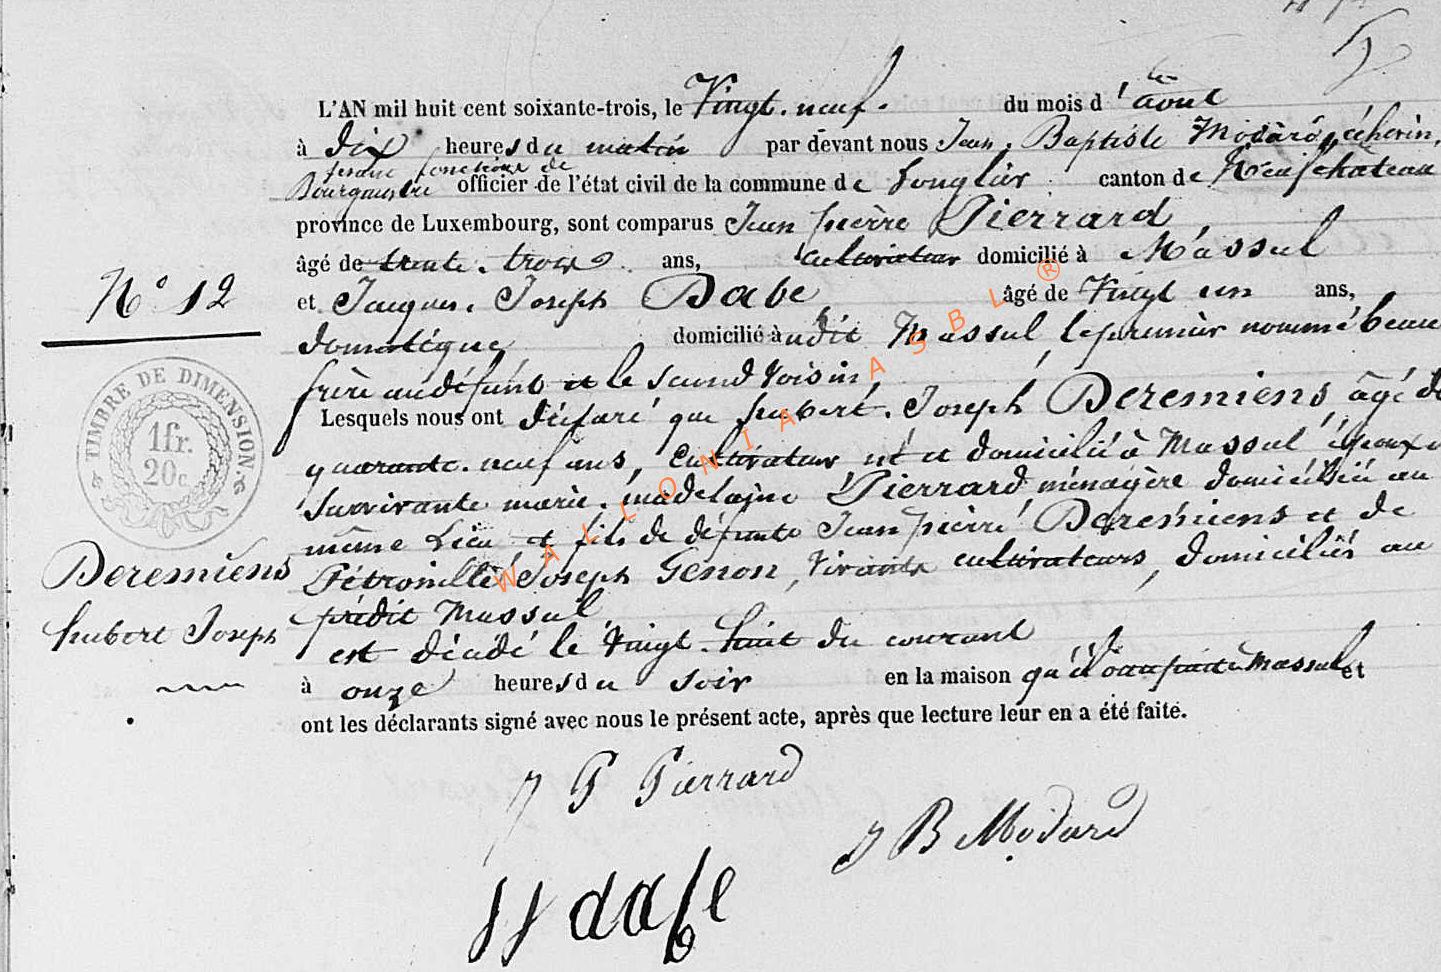 L'AN mil huit cent soixante-trois, le Vingt-neuf. du mois d'août
à dix heures du matin par devant nous Jean, Baptiste Modard, échevin,
fesant fonctions de
Bourgmestre officier de l'état civil de la commune de Longlier canton de Neufchateau
province de Luxembourg, sont comparus Jean pierre Pierrard
âgé de trente-trois ans, cultivateur domicilié à Massul
N° 12
et Jacques, Joseph Dabe âgé de Vingt un ans,
domestique domicilié à udit Massul, le premier nommé beau
frère au défunt et le second voisin,
Lesquels nous ont déclaré que hubert, Joseph Deremiens âgé de
quarante-neuf ans, cultivateur né et domicilié à Massul époux
survivante marie, madelaine Pierrard ménagère domiciliée au
même Lieu et fils de défunts Jean pierre Deremiens et de
Pétronille Joseph Genon, vivants cultivateurs, domiciliés au
prédit Massul
est décédé le vingt-huit du courant
à onze heures du soir en la maison qu'il occupait à Massul et
ont les déclarants signé avec nous le présent acte, après que lecture leur en a été faite.
TIMBRE DE DIMENSION
1fr.
20c.
Deremiens
hubert Joseph
WALLONIA ASBL ®
J P Pierrard
J B Modard
JJ dabe